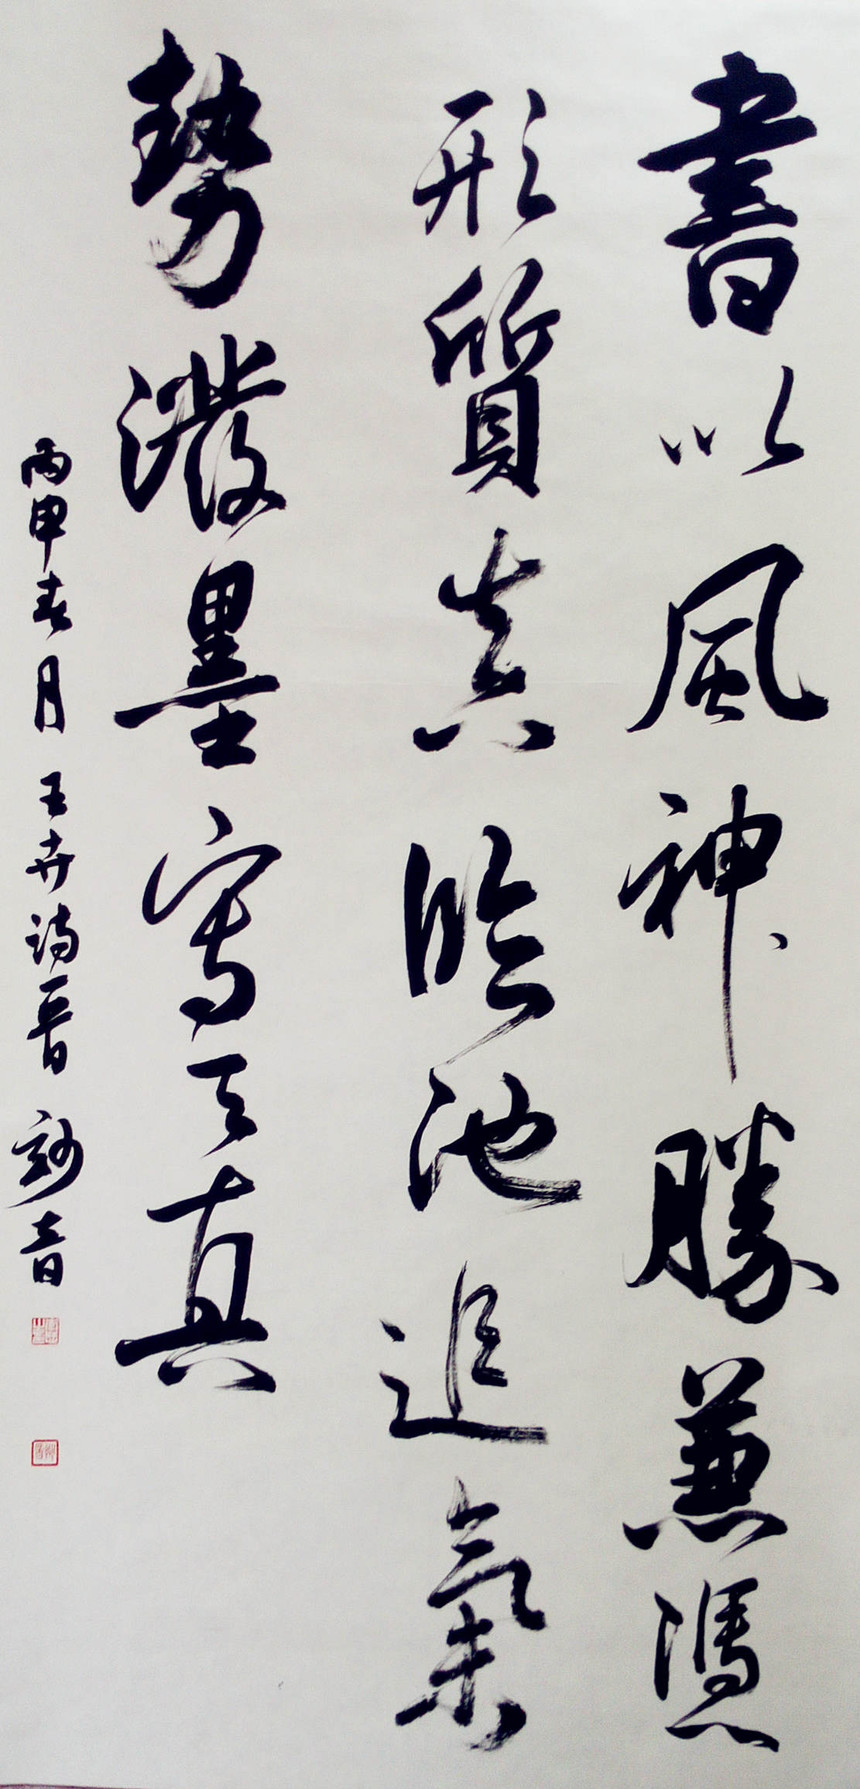 書以風神勝兼憑
形質真臨池追氣
勢潑墨寫天真
丙申春月王卉詩晉妙音